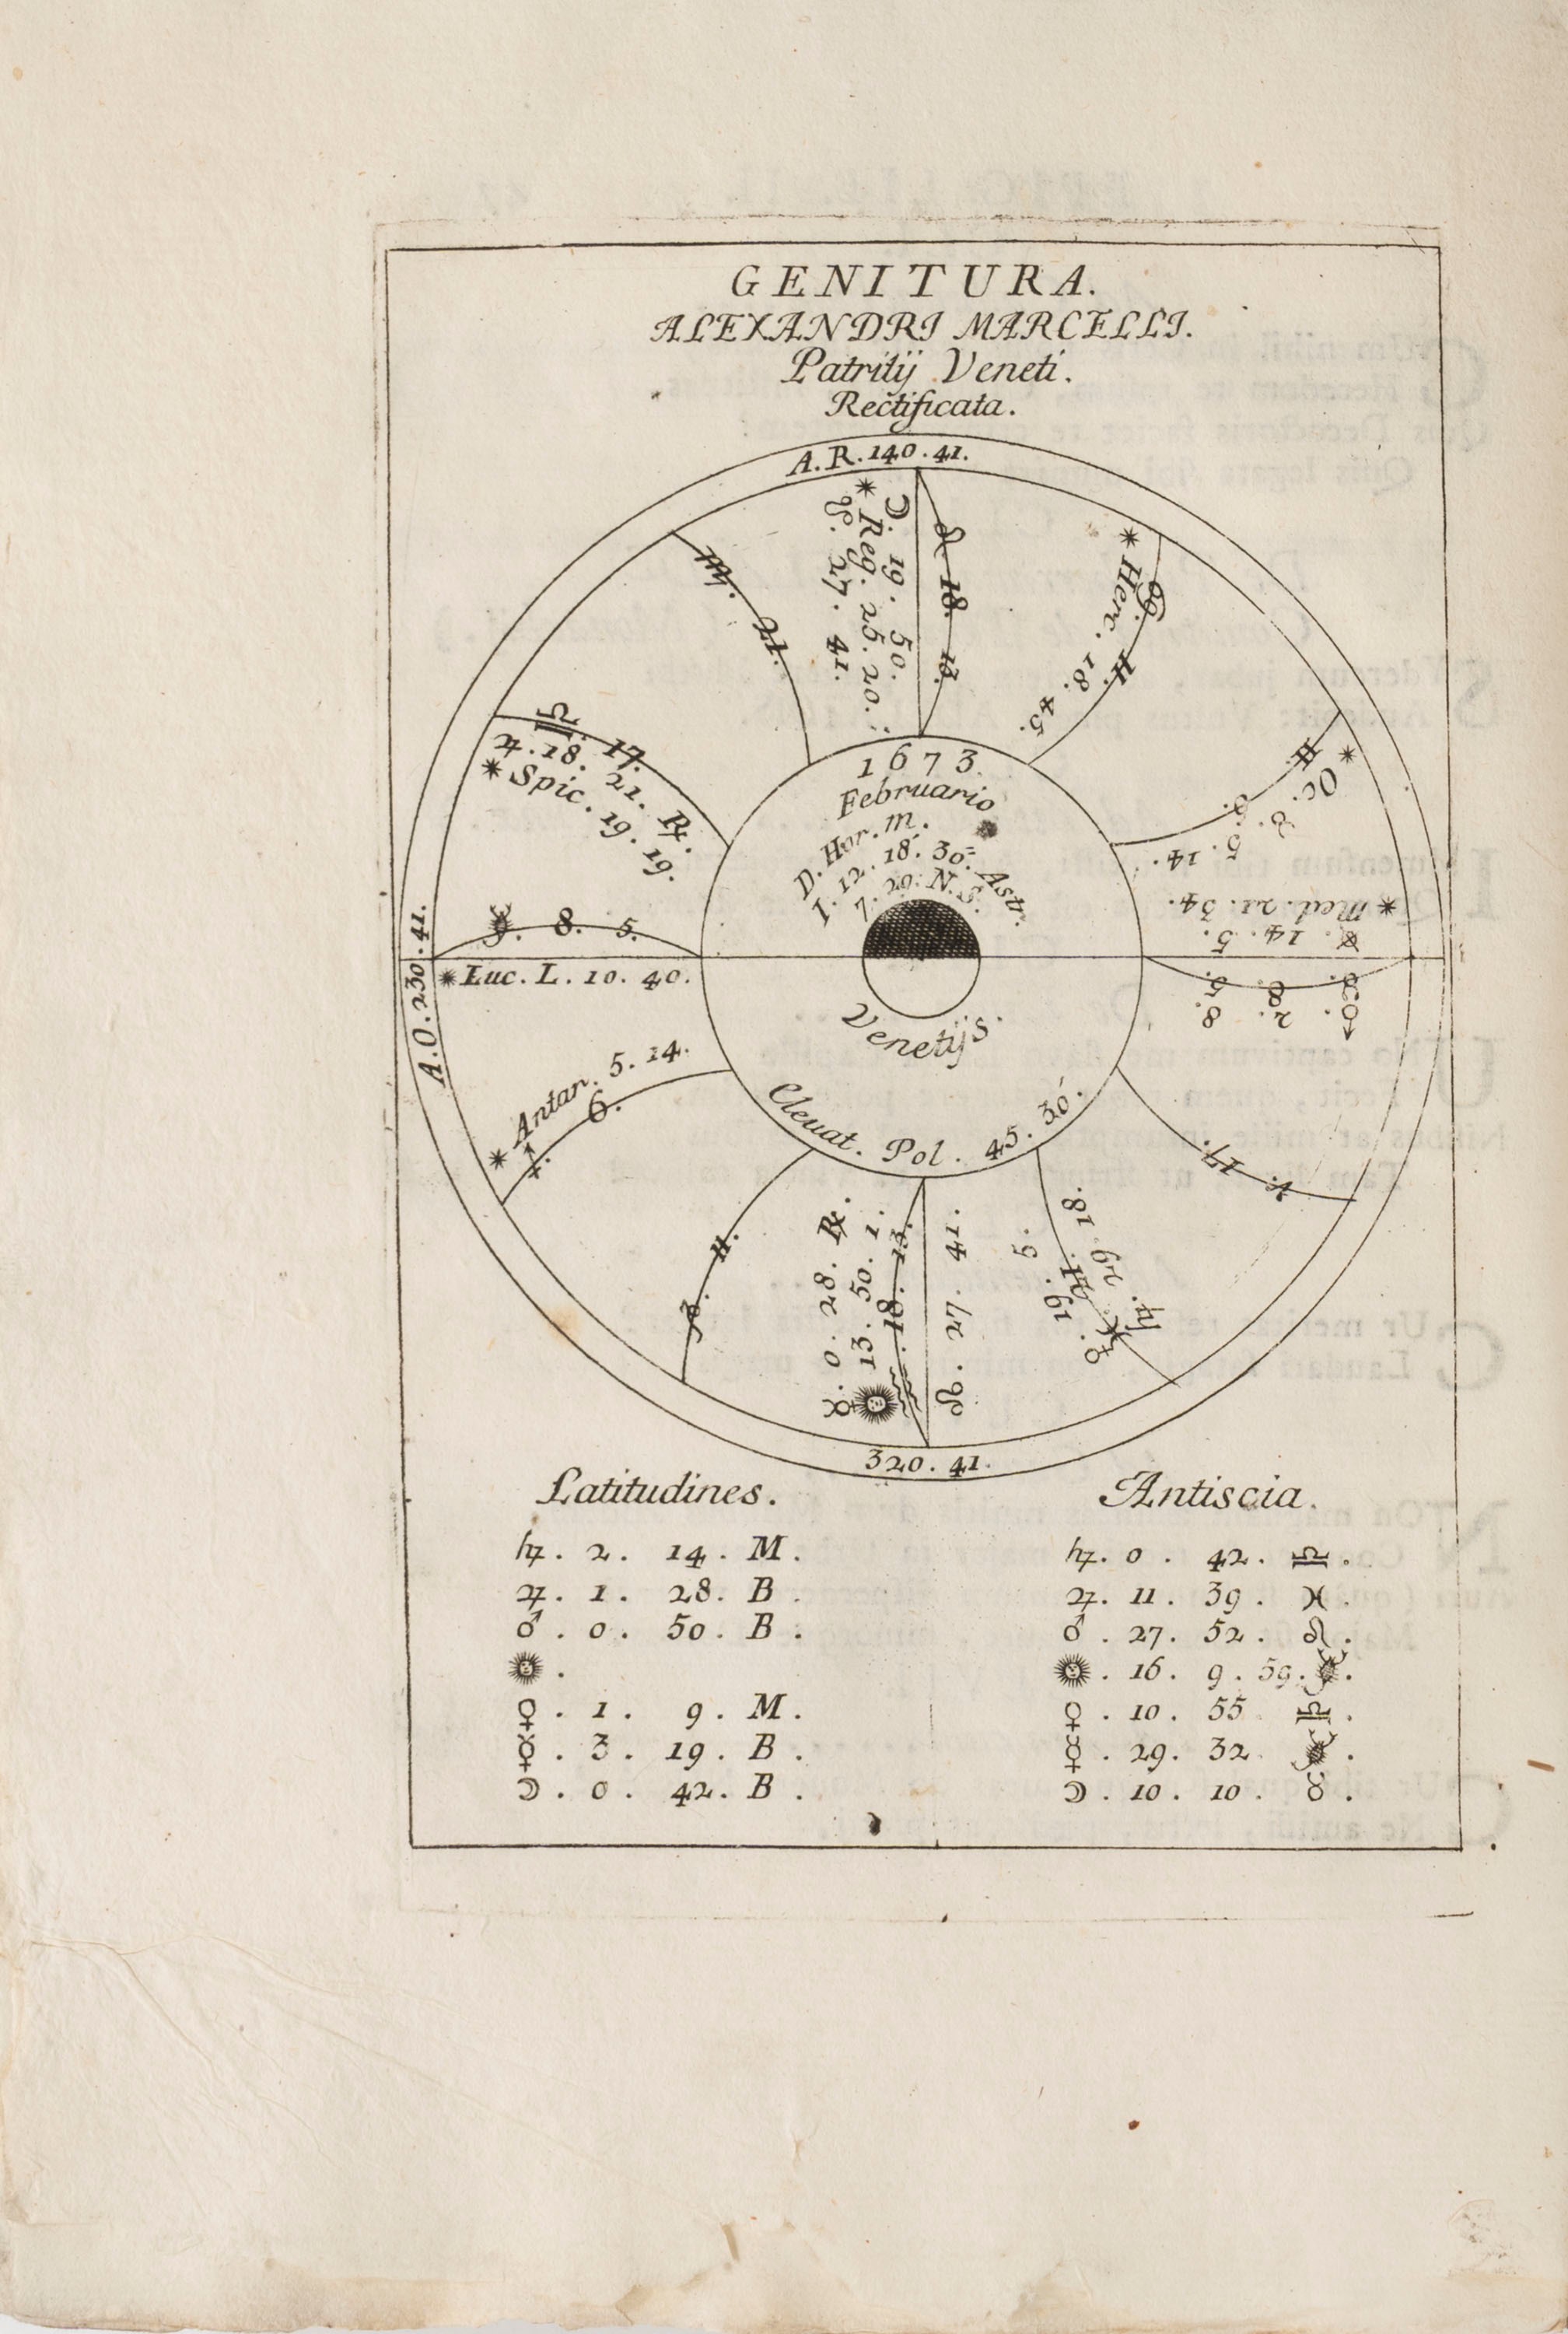 GENITURA.
ALEXANDRI MARCELLI.
Patritij Veneti.
Rectificata.
A.R. 140. 41.
♍. 21.
☽. 19. 50.
✶ Reg. 25. 20.
☋. 27. 41.
♌ 18. 13.
♋. 11.
✶ Herc. 18. 45.
♎. 17.
♃. 18. 21. ℞.
✶ Spic. 19. 19.
♊. 6.
✶ Oc. ♉. 5. 14.
✶ Med. 21. 34.
14. 5.
♏. 8. 5.
♉. 8. 5.
♂. 2. 8.
A.O. 230. 41.
✶ Luc. L. 10. 40.
✶ Antar. 5. 14.
♐. 6.
♑. 11.
☿. 0. 28. ℞.
☉ 13. 50. 1.
♒. 18. 13.
☊. 27. 41.
♀. 19. 5.
♓. 21.
♄. 29. 18.
♈. 17.
320. 41.
1673.
Februario
D. Hor. m.
1. 12. 18. 30. Astr.
7. 20. N. S.
Venetijs.
Eleuat. Pol. 45. 30.
Latitudines.
♄. 2. 14. M.
♃. 1. 28. B.
♂. 0. 50. B.
☉.
♀. 1. 9. M.
☿. 3. 19. B.
☽. 0. 42. B.
Antiscia.
♄. 0. 42. ♎.
♃. 11. 39. ♓.
♂. 27. 52. ♌.
☉. 16. 9. 59. ♏.
♀. 10. 55 ♎.
☿. 29. 32. ♏.
☽. 10. 10. ♉.